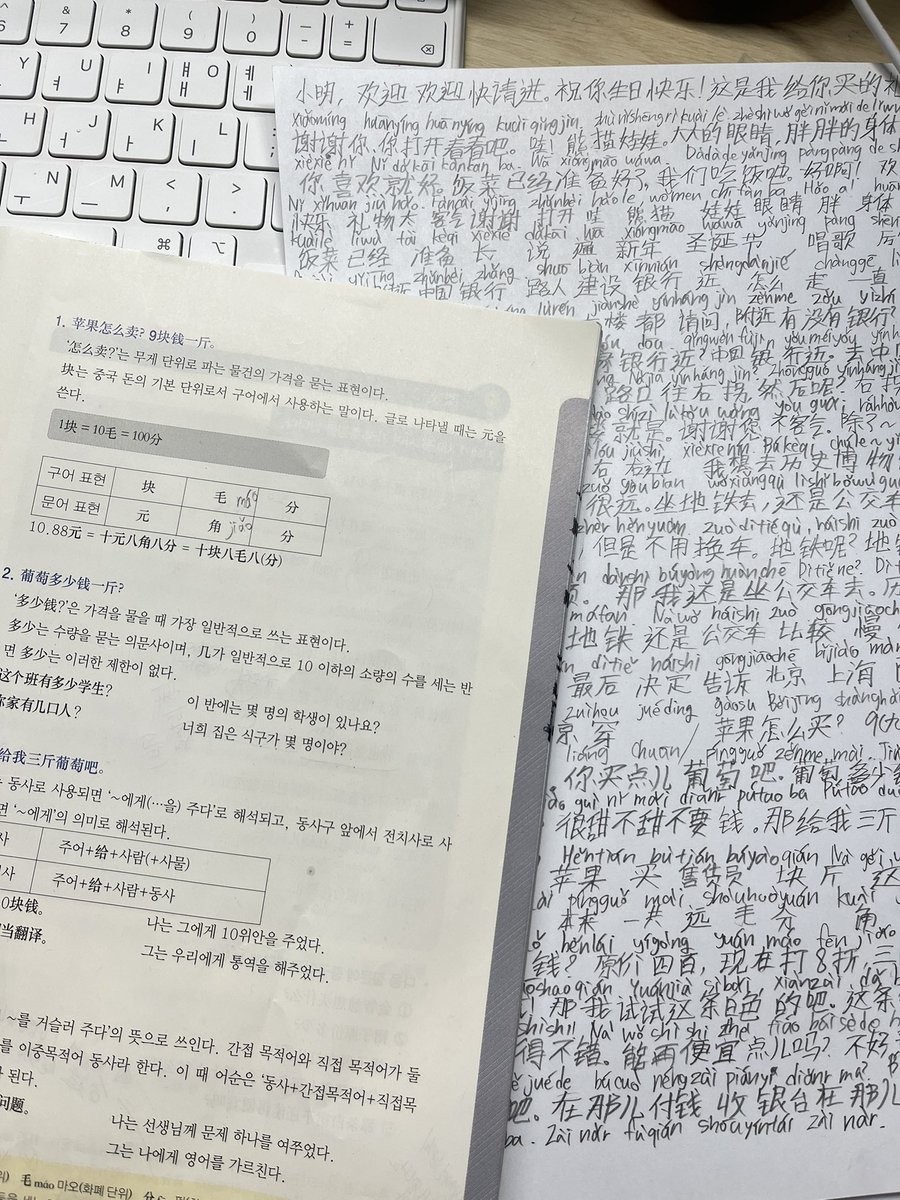 6 7 8 9 0 - =
ㅕ U ㅑ I ㅐ O ㅔ
H ㅗ J ㅓ K ㅏ L ㅣ
N ㅜ M ㅡ < , > .
⌘ ⌥
小明，欢迎 欢迎 快请进。祝你生日快乐！这是我给你买的礼
Xiǎomíng huānyíng huānyíng kuài qǐngjìn. zhù nǐ shēngrì kuàilè. zhè shì wǒ gěi nǐ mǎi de lǐwù
谢谢你、你打开看看吧。哇！熊猫娃娃。大大的眼睛，胖胖的身体
xièxiè nǐ Nǐ dǎkāi kànkan ba. Wā xióngmāo wáwa. Dàdà de yǎnjing pàngpàng de sh
你喜欢就好。饭菜已经准备好了，我们吃饭吧。好啊！欢
Nǐ xǐhuan jiù hǎo. fàncài yǐjīng zhǔnbèi hǎo le, wǒmen chī fàn ba Hǎo a! huān
快乐 礼物 太 客气 谢谢 打开 哇 熊猫 娃娃 眼睛 胖 身体
kuàilè lǐwù tài kèqi xièxie dǎkāi wā xióngmāo wáwa yǎnjing pàng shēn
饭菜 已经 准备 长 说 遍 新年 圣诞节 唱歌 历
yǐjīng zhǔnbèi zhǎng shuō biàn xīnnián shèngdànjié chànggē lì
中国银行 路人 建设银行 近 怎么 走 一直
lùrén jiànshè yínháng jìn zěnme zǒu yìzhí
楼 都 请问，附近有没有银行？
dōu qǐngwèn fùjìn yǒu méiyǒu yínháng
家银行近？中国银行近。去中国
Nǎjiā yínháng jìn? Zhōngguó yínháng jìn
路口往右拐，然后呢？右拐
shízì lùkǒu wǎng yòu guǎi, ránhòu
就是。谢谢您 不客气。除了～
jiùshì xièxie nín. Búkèqi chúle ~
右 右边 我想去历史博物
zuǒ yòubian wǒ xiǎng qù lìshǐ bówùgu
很远。坐地铁去，还是公交车
hěn yuǎn zuò dìtiě qù, háishi zuò
，但是不用换车。地铁呢？地铁
dànshì búyòng huànchē Dìtiě ne? Dìt
烦。那我还是坐公交车去。历
máfan. Nà wǒ háishi zuò gōngjiāoch
地铁 还是 公交车 比较 慢
dìtiě háishi gōngjiāochē bǐjiào màn
最后 决定 告诉 北京 上海
zuìhòu juédìng gàosu Běijīng Shànghǎ
凉 穿 苹果怎么买？9
liáng chuān píngguǒ zěnme mài. Jiǔ
你买点儿葡萄吧。葡萄多少钱
guì nǐ mǎi diǎnr pútao ba Pútao duō
很甜不甜不要钱。那给我三斤
Hěn tián bù tián bú yào qián Nà gěi w
苹果 买 售货员 块 斤 这
píngguǒ mǎi shòuhuòyuán kuài
本来 一共 远 毛 分 角
běnlái yígòng yuán máo fēn jiǎo
钱？原价四百，现在打8折，三
duōshaoqián Yuánjià sìbǎi xiànzài dǎ b
那我试试这条白色的吧。这条
shìshi! Nà wǒ shìshi zhè tiáo báisè de b
得不错。能再便宜点儿吗？不好
juéde búcuò néng zài piányi diǎnr ma.
吧。在那儿付钱 收银台在那儿
ba. Zài nǎr fùqián shōuyíntái zài nàr.
1. 苹果怎么卖? 9块钱一斤。
'怎么卖?'는 무게 단위로 파는 물건의 가격을 묻는 표현이다.
块는 중국 돈의 기본 단위로서 구어에서 사용하는 말이다. 글로 나타낼 때는 元을
쓴다.
1块 = 10毛 = 100分
구어 표현 块 毛 máo 分
문어 표현 元 角 jiǎo 分
10.88元 = 十元八角八分 = 十块八毛八(分)
2. 葡萄多少钱一斤?
'多少钱?'은 가격을 물을 때 가장 일반적으로 쓰는 표현이다.
多少는 수량을 묻는 의문사이며, 几가 일반적으로 10 이하의 소량의 수를 세는 반
면 多少는 이러한 제한이 없다.
这个班有多少学生? 이 반에는 몇 명의 학생이 있나요?
你家有几口人? 너희 집은 식구가 몇 명이야?
给我三斤葡萄吧。
동사로 사용되면 '~에게(…을) 주다'로 해석되고, 동사구 앞에서 전치사로 사
면 '~에게'의 의미로 해석된다.
사 주어+给+사람(+사물)
사 주어+给+사람+동사
0块钱。 나는 그에게 10위안을 주었다.
当翻译。 그는 우리에게 통역을 해주었다.
~를 거슬러 주다'의 뜻으로 쓰인다. 간접 목적어와 직접 목적어가 둘
를 이중목적어 동사라 한다. 이 때 어순은 '동사+간접목적어+직접목
된다.
问题。 나는 선생님께 문제 하나를 여쭈었다.
그는 나에게 영어를 가르친다.
위) 毛 máo 마오(화폐 단위) 分